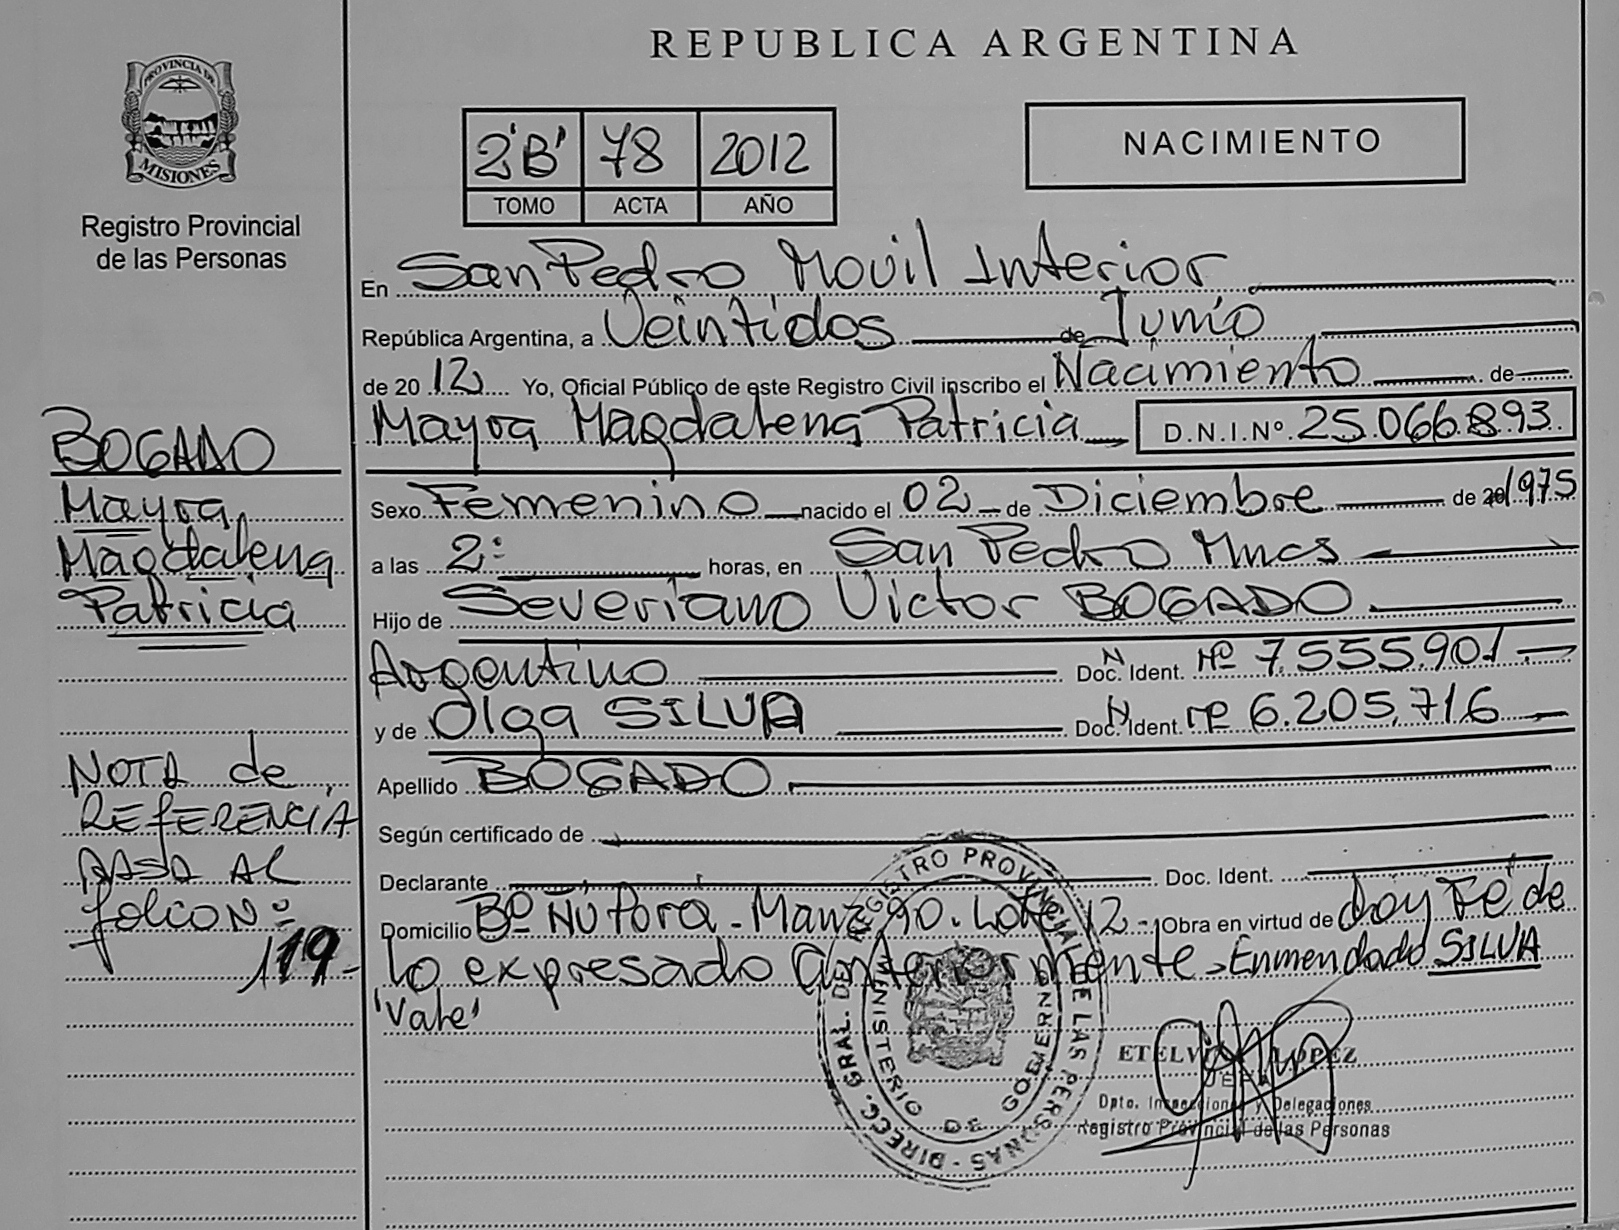 REPUBLICA ARGENTINA
PROVINCIA DE
MISIONES
Registro Provincial
de las Personas
2'B' 78 2012
TOMO ACTA AÑO
NACIMIENTO
En San Pedro Movil Interior
República Argentina, a Veintidos de Junio
de 20 12 Yo, Oficial Público de este Registro Civil inscribo el Nacimiento de
Mayra Magdalena Patricia D.N.I.Nº 25.066.893
Sexo Femenino nacido el 02 de Diciembre de 20 1975
a las 2: horas, en San Pedro Mnes
Hijo de Severiano Victor BOGADO
Argentino Doc. N Ident. Nº 7.555.901
y de Olga SILVA Doc. N Ident. Nº 6.205.716
Apellido BOGADO
Según certificado de
Declarante Doc. Ident.
Domicilio Bº ÑU Porá - Manz 90 - Lote 12 - Obra en virtud de doy Fé de
lo expresado anteriormente - Enmendado SILVA
'Vale'
BOGADO
Mayra
Magdalena
Patricia
NOTA de
REFERENCIA
PASA AL
folio Nº
119-
DIRECC. GRAL. DE REGISTRO PROVINCIAL DE LAS PERSONAS
MINISTERIO DE GOBIERNO
LOPEZ
JEFA
Dpto. Inspecciones y Delegaciones
Registro Provincial de las Personas